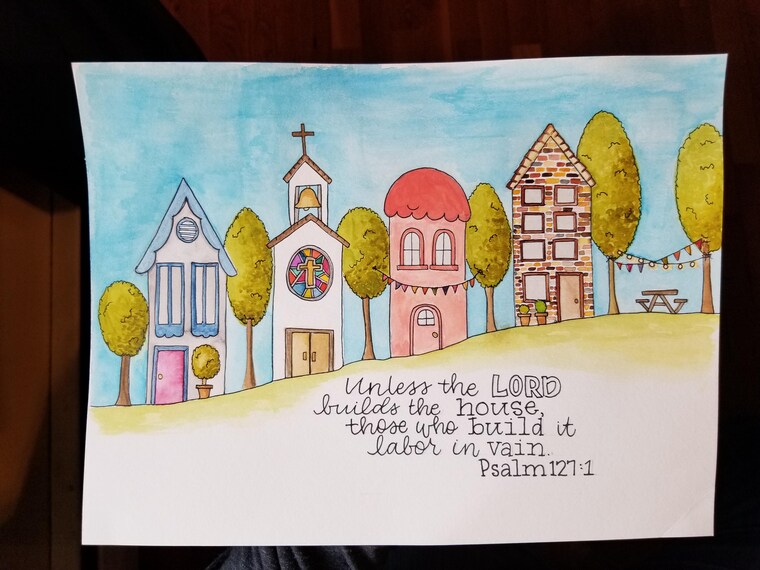 Unless the LORD
builds the house,
those who build it
labor in vain.
Psalm 127:1